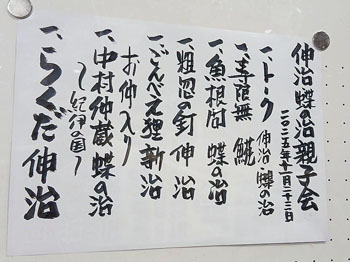 伸治蝶の治親子会
二〇二五年十一月二十三日
一、トーク 伸治 蝶の治
一、寿限無 鯱
一、魚根問 蝶の治
一、粗忽の釘 伸治
一、ごんべえ狸 新治
お仲入り
一、中村仲蔵 蝶の治
〜紀伊の国〜
一、らくだ 伸治